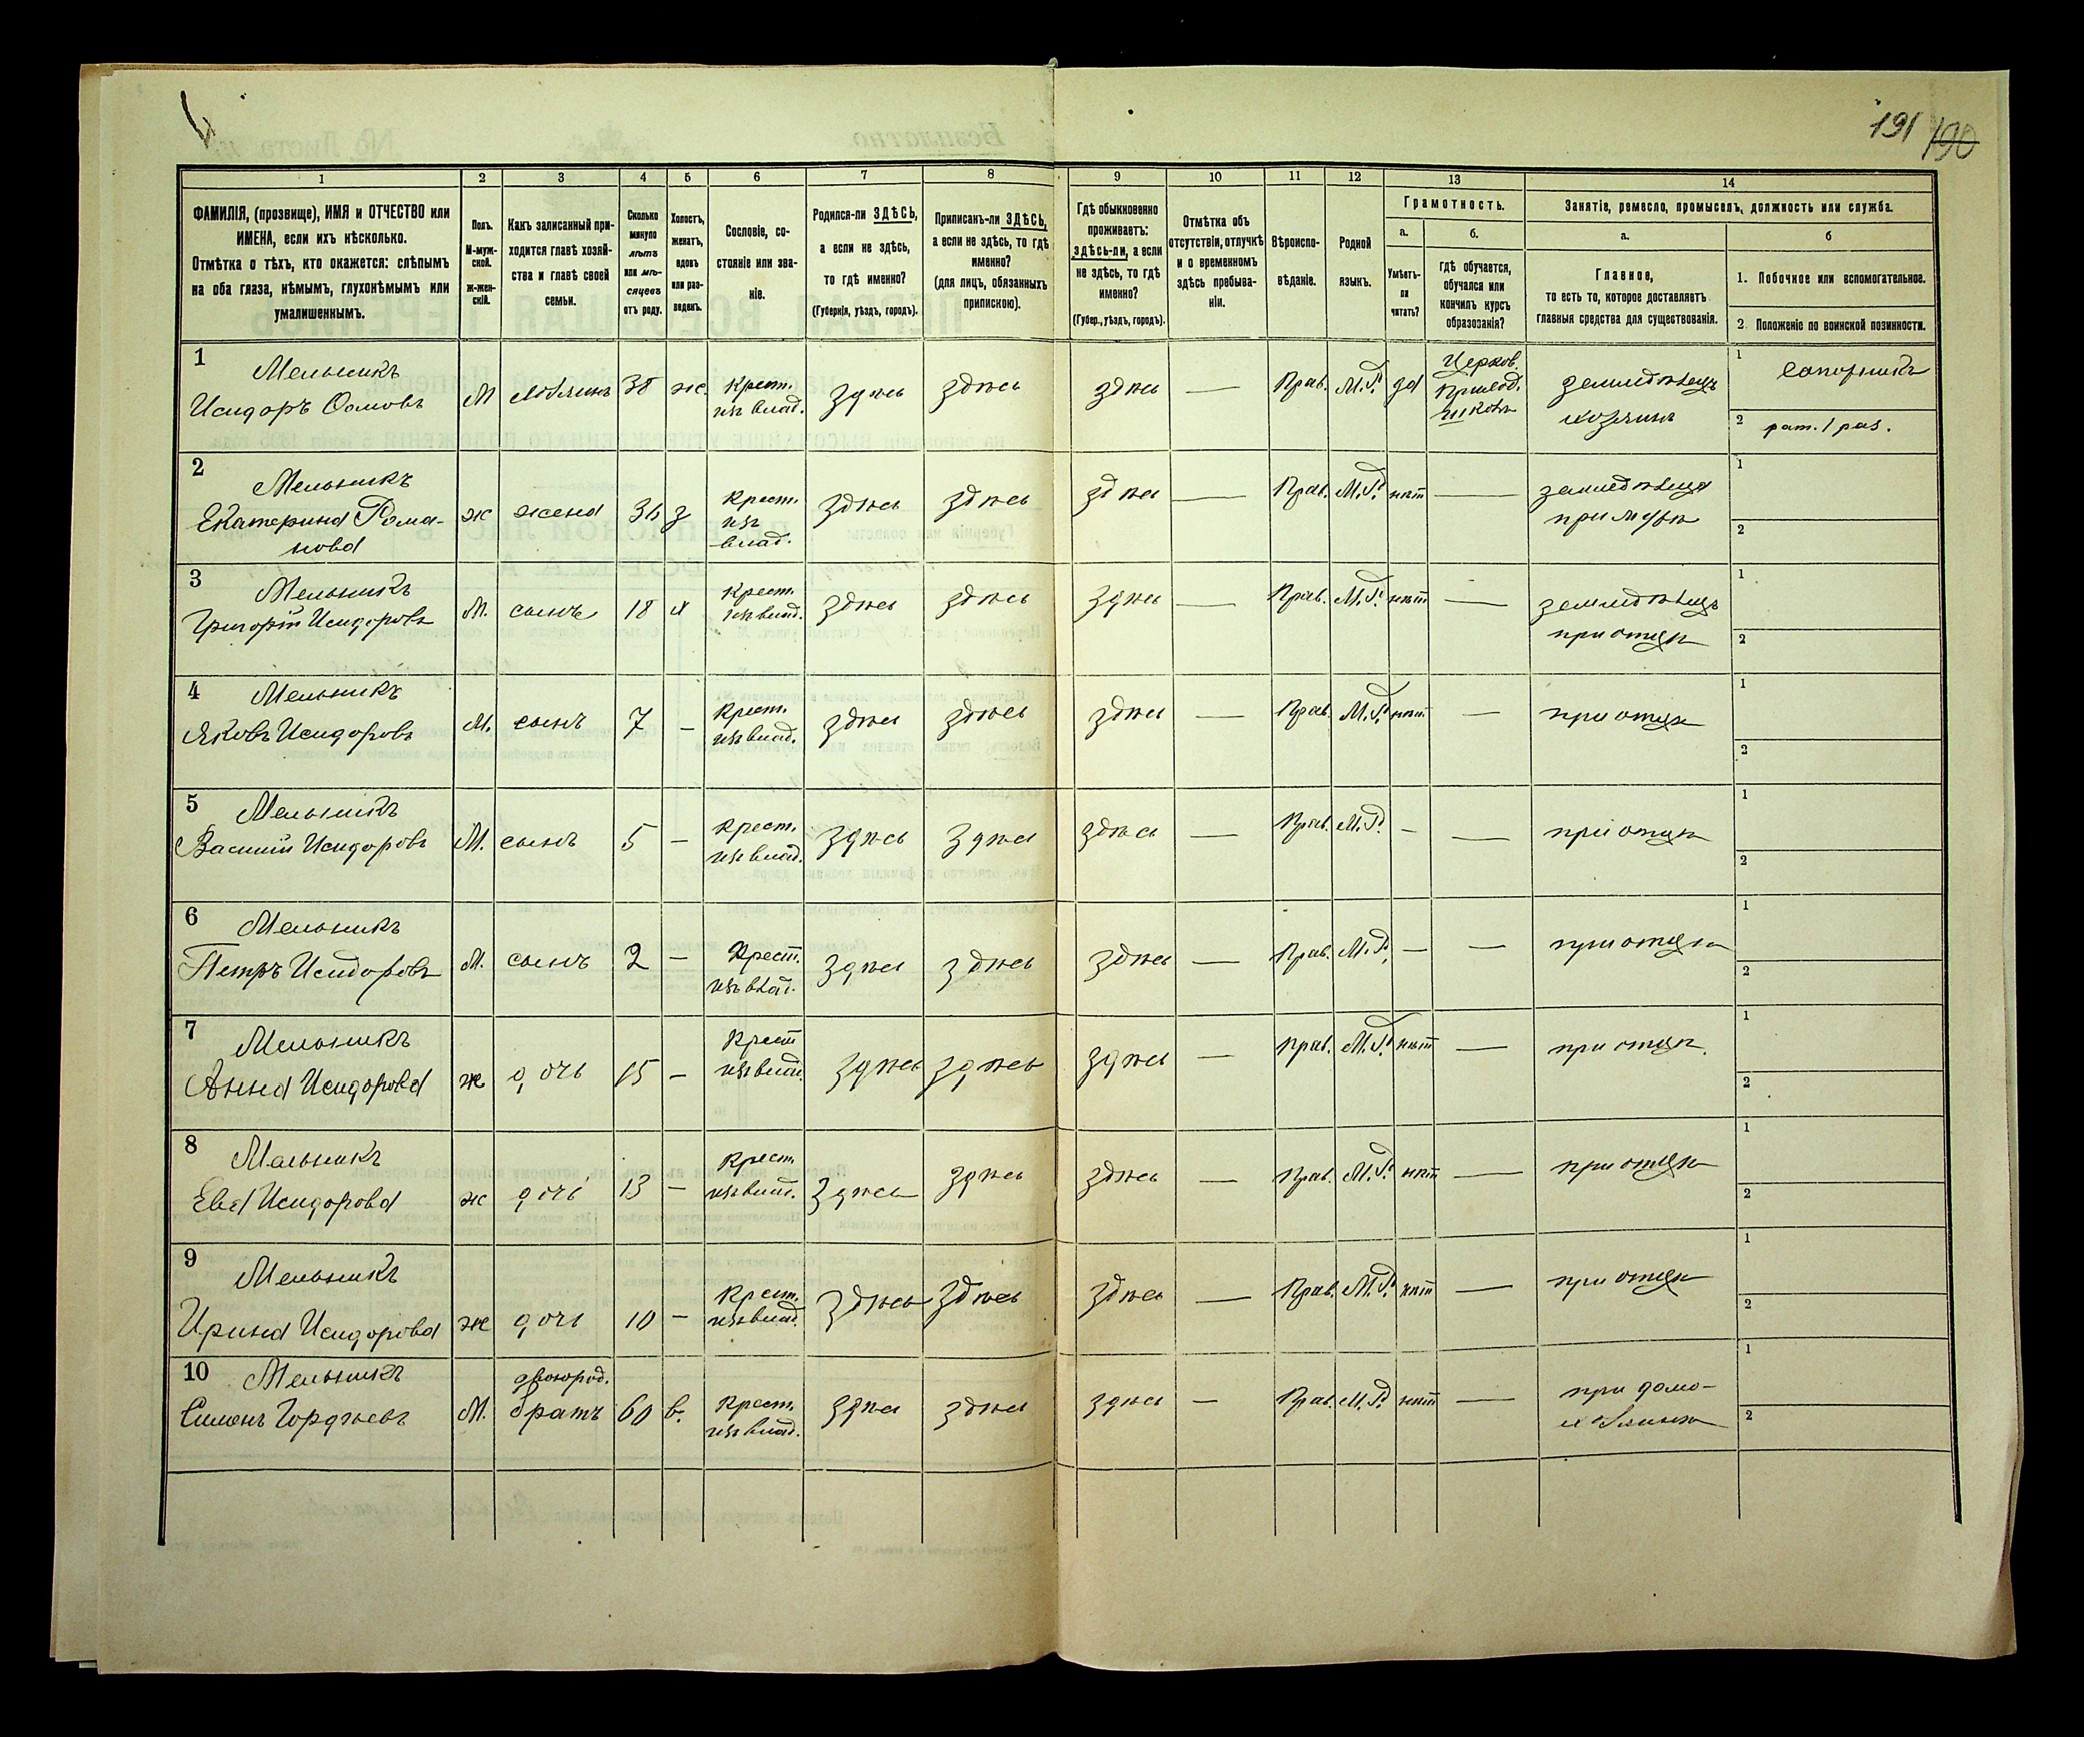 191 190
1 2 3 4 5 6 7 8 9 10 11 12 13 14
ФАМИЛІЯ, (прозвище), ИМЯ и ОТЧЕСТВО или
ИМЕНА, если ихъ нѣсколько.
Отмѣтка о тѣхъ, кто окажется: слѣпымъ
на оба глаза, нѣмымъ, глухонѣмымъ или
умалишеннымъ.
Полъ.
М-муж-
ской.
ж-жен-
скій.
Какъ записанный при-
ходится главѣ хозяй-
ства и главѣ своей
семьи.
Сколько
минуло
лѣтъ
или мѣ-
сяцевъ
отъ роду.
Холостъ,
женатъ,
вдовъ
или раз-
веденъ.
Сословіе, со-
стояніе или зва-
ніе.
Родился-ли ЗДѢСЬ,
а если не здѣсь,
то гдѣ именно?
(Губернія, уѣздъ, городъ).
Приписанъ-ли ЗДѢСЬ,
а если не здѣсь, то гдѣ
именно?
(для лицъ, обязанныхъ
припискою).
Гдѣ обыкновенно
проживаетъ:
здѣсь-ли, а если
не здѣсь, то гдѣ
именно?
(Губер., уѣздъ, городъ).
Отмѣтка объ
отсутствіи, отлучкѣ
и о временномъ
здѣсь пребыва-
ніи.
Вѣроиспо-
вѣданіе.
Родной
языкъ.
Грамотность.
а.
Умѣетъ-
ли
читать?
б.
гдѣ обучается,
обучался или
кончилъ курсъ
образованія?
Занятіе, ремесло, промыселъ, должность или служба.
а.
Главное,
то есть то, которое доставляетъ
главныя средства для существованія.
б
1. Побочное или вспомогательное.
2. Положеніе по воинской повинности.
1 Мельникъ
Исидоръ Ѳомовъ М хозяинъ 38 ж. Крест. изъ влад. здѣсь здѣсь здѣсь — Прав. М.Р. да Церков. Приход. школѣ земледѣлецъ хозяинъ
1
2 рат. 1 раз.
2 Мельникъ
Екатерина Рома-
нова ж жена 36 з Крест. изъ влад. здѣсь здѣсь здѣсь — Прав. М.Р. нѣт — земледѣлица при мужѣ
1
2
3 Мельникъ
Григорій Исидоровъ М. сынъ 18 х Крест. изъ влад. здѣсь здѣсь здѣсь — Прав. М.Р. нѣт — земледѣлецъ при отцѣ
1
2
4 Мельникъ
Яковъ Исидоровъ М. сынъ 7 — Крест. изъ влад. здѣсь здѣсь здѣсь — Прав. М.Р. нѣт — при отцѣ
1
2
5 Мельникъ
Василій Исидоровъ М. сынъ 5 — Крест. изъ влад. здѣсь здѣсь здѣсь — Прав. М.Р. — — при отцѣ
1
2
6 Мельникъ
Петръ Исидоровъ М. сынъ 2 — Крест. изъ влад. здѣсь здѣсь здѣсь — Прав. М.Р. — — при отцѣ
1
2
7 Мельникъ
Анна Исидорова ж дочь 15 — Крест изъ влад. здѣсь здѣсь здѣсь — Прав. М.Р. нѣт — при отцѣ.
1
2
8 Мельникъ
Ева Исидорова ж дочь 13 — Крест. изъ влад. здѣсь здѣсь здѣсь — Прав. М.Р. нѣт — при отцѣ
1
2
9 Мельникъ
Ирина Исидорова ж дочь 10 — Крест. изъ влад. здѣсь здѣсь здѣсь — Прав. М.Р. нѣт — при отцѣ
1
2
10 Мельникъ
Симонъ Гордѣевъ М. двоюрод. братъ 60 в. Крест. изъ влад. здѣсь здѣсь здѣсь — Прав. М.Р. нѣт — при домо-
хозяинѣ
1
2